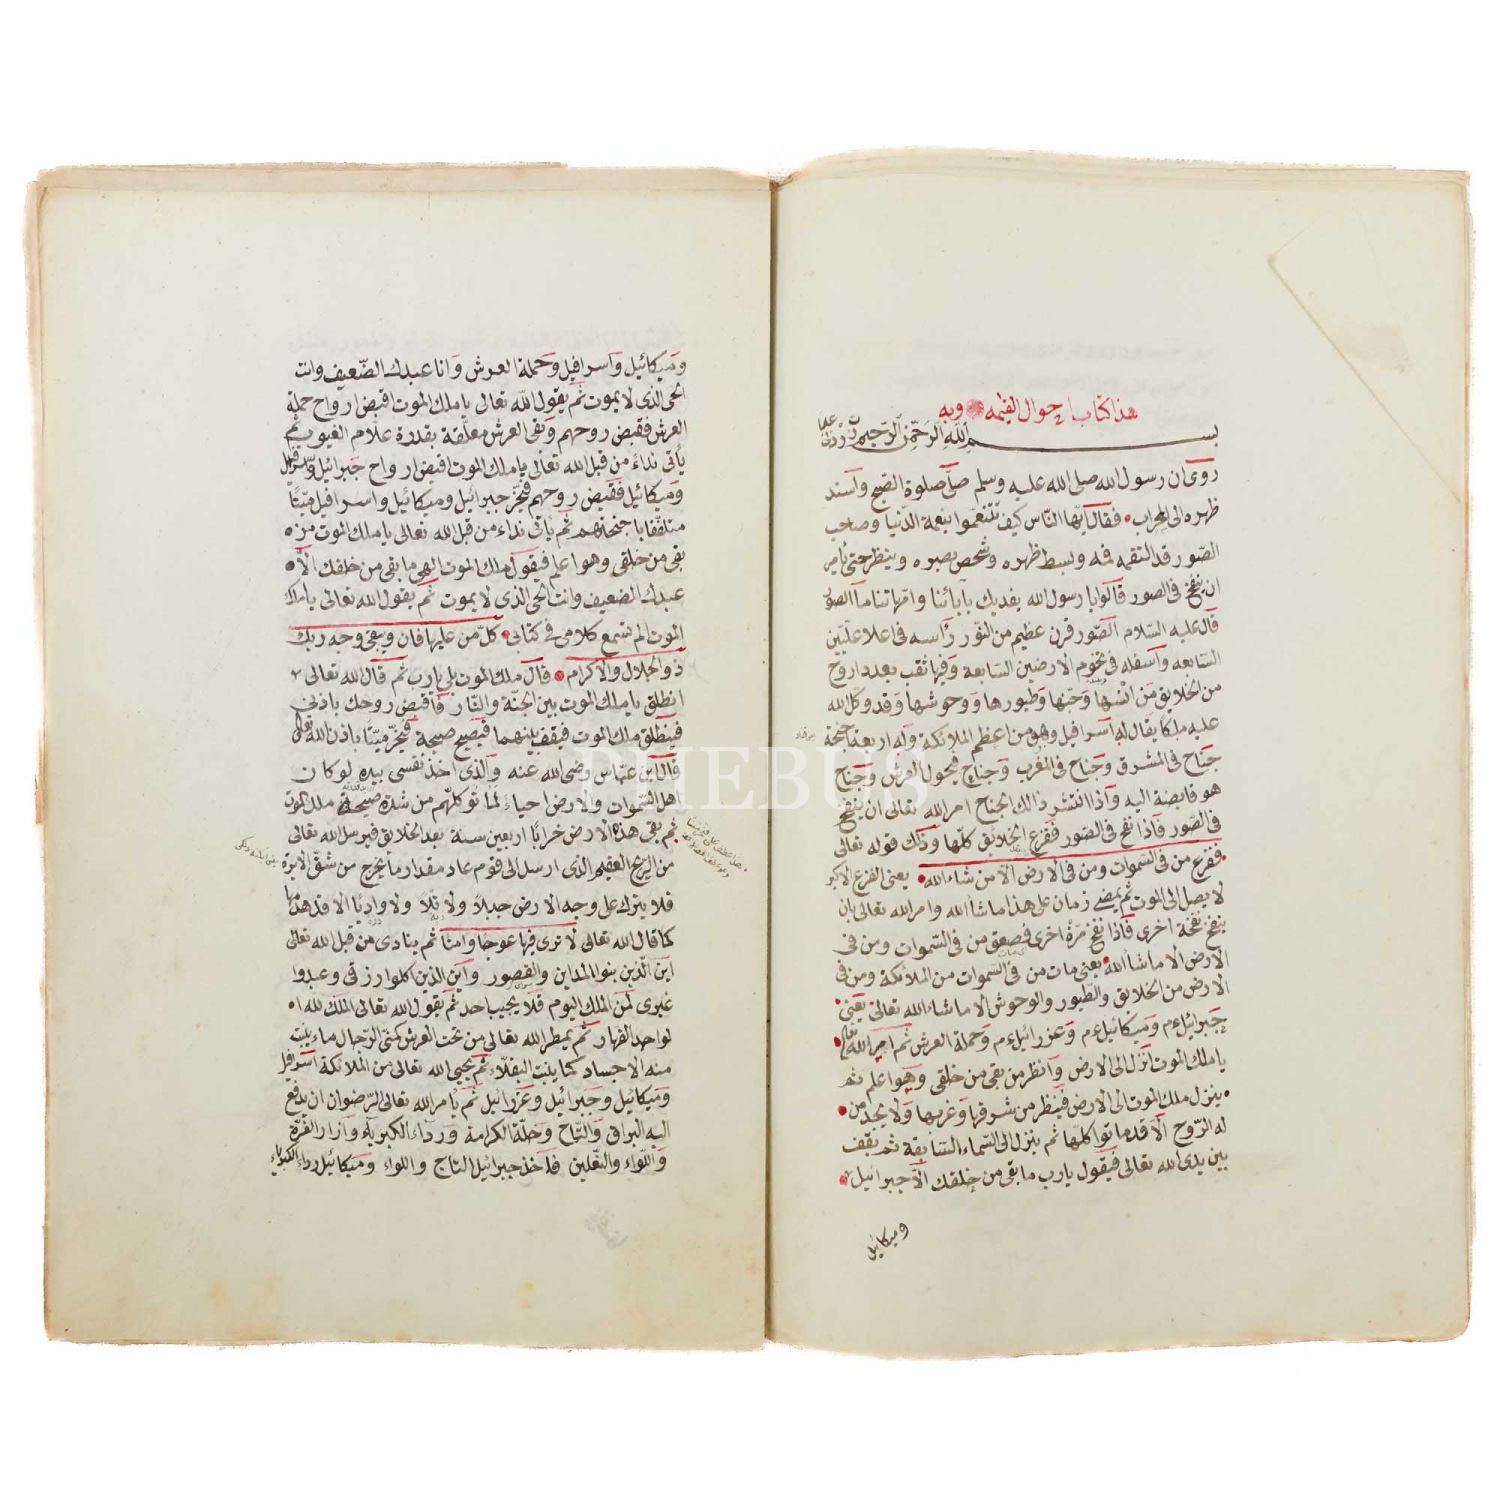 هذا كتاب احوال القيمه وبه
بسم الله الرحمن الرحيم
روى ان رسول الله صلى الله عليه وسلم صلّى صلوة الصبح واسند
ظهره الى المحراب فقال ايها النّاس كيف تتنعموا بنعمة الدّنيا وصاحب
الصّور قد التقمه فمه وبسط ظهره وشخص بصره وينظر حتى يامر
ان ينفخ فى الصور قالوا يا رسول الله يفديك بآبائنا وامّهاتنا ما الصور
قال عليه السّلام الصّور قرن عظيم من النّور رأسه فى اعلا علّيّين
السّابعه واسفله فى تخوم الارضين السّابعة وفيها ثقب بعدد ارواح
من الخلايق من انسها وجنّها وطيورها ووحوشها وقد وكّل لله
عليه ملكا يقال له اسرافيل وهو من اعظم الملائكة وله اربعة اجنحة
جناح فى المشرق وجناح فى المغرب وجناح فيحول العرش وجناح
هو قابضة اليه واذا انتشر ذالك الجناح امر الله تعالى ان ينفخ
فى الصّور فاذا نفخ فى الصّور ففزع الخلايق كلّها وذلك قوله تعالى
ففزع من فى السّموات ومن فى الارض الّا من شاء الله يعنى الفزع الاكبر
لا يصل الى الموت ثم يمضى زمان على هذا ما شاء الله وامر الله تعالى بان
ينفخ نفخة اخرى فاذا نفخ مرّة اخرى فصعق من فى السّموات ومن فى
الارض الا ما شاء الله يعنى مات من فى السموات من الملائكة ومن فى
الارض من الخلايق والطيور والوحوش الا ما شاء الله تعالى يعنى
جبرائيل ع م وميكائيل ع م وعزرائيل ع م وحملة العرش ثم امر الله تعالى
يا ملك الموت انزل الى الارض وانظر من بقى من خلقى وهو اعلم ثم
ينزل ملك الموت الى الارض فينظر من شرقها وغربها ولا يجد من
له الرّوح الّا قد ماتوا كلّها ثم ينزل الى السّماء السّابقة ثم تقف
بين يدى الله تعالى فيقول يارب ما بقى من خلقك الّا جبرائيل
وميكائيل
وميكائيل واسرافيل وحملة العرش وانا عبدك الضّعيف وانت
الحى الذى لا يموت ثم يقول الله تعالى يا ملك الموت اقبض ارواح حملة
العرش فقبض روحهم وبقى العرش معلّقة بقدرة علّام الغيوب ثم
يأتى نداء من قبل الله تعالى يا ملك الموت اقبض ارواح جبرائيل واسرافيل
وميكائيل فقبض روحهم فيخرّ جبرائيل وميكائيل واسرافيل ميّتا
متلفّفا باجنحتهم ثم ياتى نداء من قبل الله تعالى يا ملك الموت من
بقى من خلقى وهو اعلم فيقول ملك الموت الهى ما بقى من خلقك الّا
عبدك الضعيف وانت الحى الذى لا يموت ثم يقول الله تعالى يا ملك
الموت الم تسمع كلامى فى كتابى كلّ من عليها فان ويبقى وجه ربك
ذو الجلال والاكرام قال ملك الموت بلى يا رب ثم قال الله تعالى
انطلق يا ملك الموت بين الجنّة والنّار فاقبض روحك باذنى
فينطلق ملك الموت فيقف بينهما فيصيح صيحة فيخرّ ميّتا باذن الله تعالى
قال ابن عبّاس رضى الله عنه والّذى اخذ نفسى بيده لو كان
اهل السّموات والارض احياء لماتو كلّهم من شدة صيحة ملك الموت
ثم بقى هذه الارض خرابا اربعين سنة بعد الخلايق فيرسل الله تعالى
من الريح العقيم الذى ارسل الى قوم عاد مقدار ما يخرج من شقّ الابرة
فلا يترك على وجه الارض جبلا ولا تلا ولا واديا الا قد هدمها
كما قال الله تعالى لا ترى فيها عوجا وامتا ثم ينادى من قبل الله تعالى
اين الّذين بنوا المداين والقصور واين الذين اكلوا رزقى وعبدوا
غيرى لمن الملك اليوم فلا يجيب احد ثم يقول الله تعالى الملك لله ا
لواحد القهار ثم يمطر الله تعالى من تحت العرش كمنى الرّجال ماء ينبت
منه الاجساد كما ينبت البقلاء ثم يحيى الله تعالى من الملائكة اسرافيل
وميكائيل وجبرائيل وعزرائيل ثم يامر الله تعالى الرّضوان ان يدفع
اليه البراق والتّاج وحلّة الكرامة ورداء الكبرياء وازار العزّة
واللّواء والنّعلين فاخذ جبرائيل التاج واللواء وميكائيل رداء الكبرياء
PHEBUS